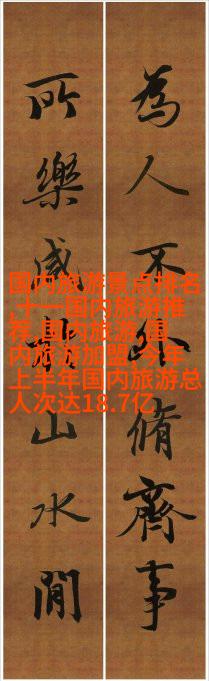 為人不外脩齊事
所樂咸山水間
国内旅游景点排名
,十一国内旅游推
荐,国内旅游,国
内旅游加盟,今年
上半年国内旅游总
人次达18.7亿